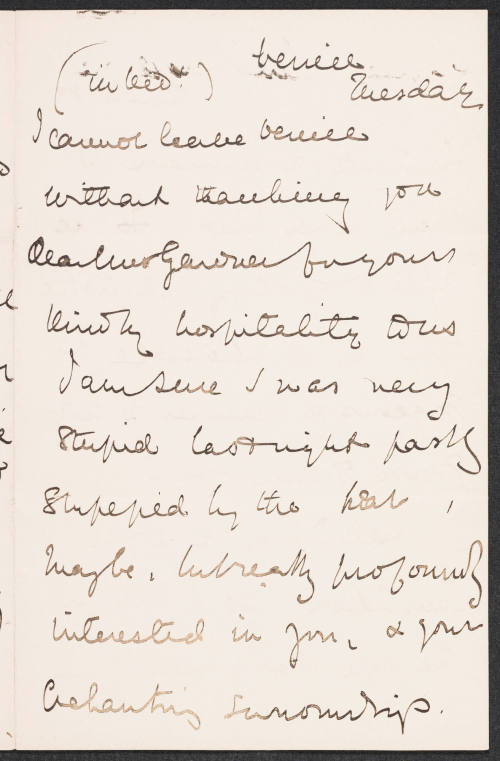 Venice
(in bed.) Tuesday
I cannot leave Venice
without thanking you
Dear Mrs Gardner for yours
kindly hospitality to us
I am sure I was very
stupid last night partly
stupefied by the heat,
maybe, but really profoundly
interested in you, & your
enchanting surroundings.